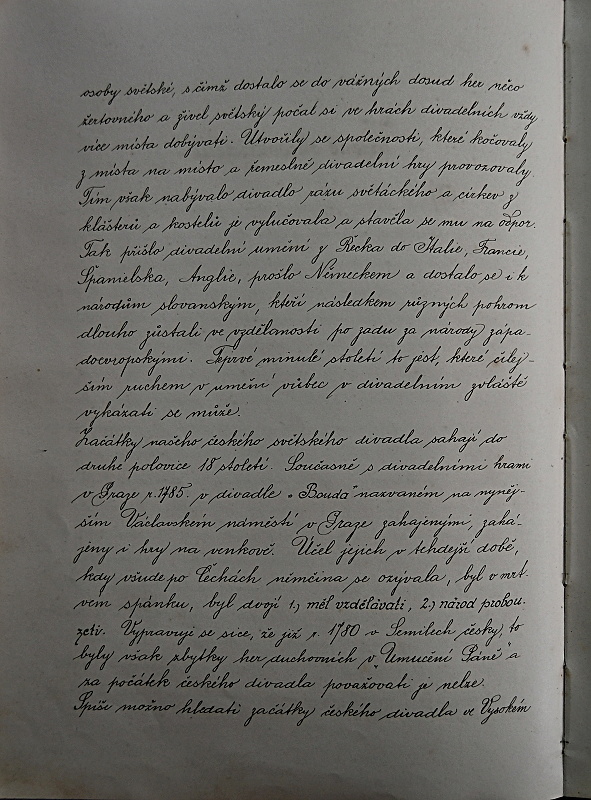 osoby světské, s čímž dostalo se do vážných dosud her něco
žertovného a živel světský počal si ve hrách divadelních vždy
více místa dobývati. Utvořily se společnosti, které kočovaly
z místa na místo a řemeslně divadelní hry provozovaly.
Tím však nabývalo divadlo rázu světáckého a církev z
klášterů a kostelů je vylučovala a stavěla se mu na odpor.
Tak přišlo divadelní umění z Řecka do Italie, Francie,
Španielska, Anglie, prošlo Německem a dostalo se i k
národům slovanským, kteří následkem různých pohrom
dlouho zůstali ve vzdělanosti po zadu za národy zápa-
doevropskými. Teprvé minulé století to jest, které čilej-
ším ruchem v umění vůbec v divadelním zvláště
vykázati se může.
Začátky našeho českého světského divadla sahají do
druhé polovice 18 století. Současně s divadelními hrami
v Praze r. 1785. v divadle „Bouda" nazvaném na nyněj-
ším Václavském náměstí v Praze zahajenými, zahá-
jeny i hry na venkově. Účel jejich v tehdejší době,
kdy všude po Čechách němčina se ozývala, byl v mrt-
vem spánku, byl dvojí 1.) měl vzdělávati, 2.) národ probou-
zeti. Vypravuje se sice, že již r. 1780 v Semilech česky, to
byly však zbytky her duchovních v „Umučení Páně" a
za počátek českého divadla považovati je nelze.
Spíše možno hledati začátky českého divadla ve Vysokém